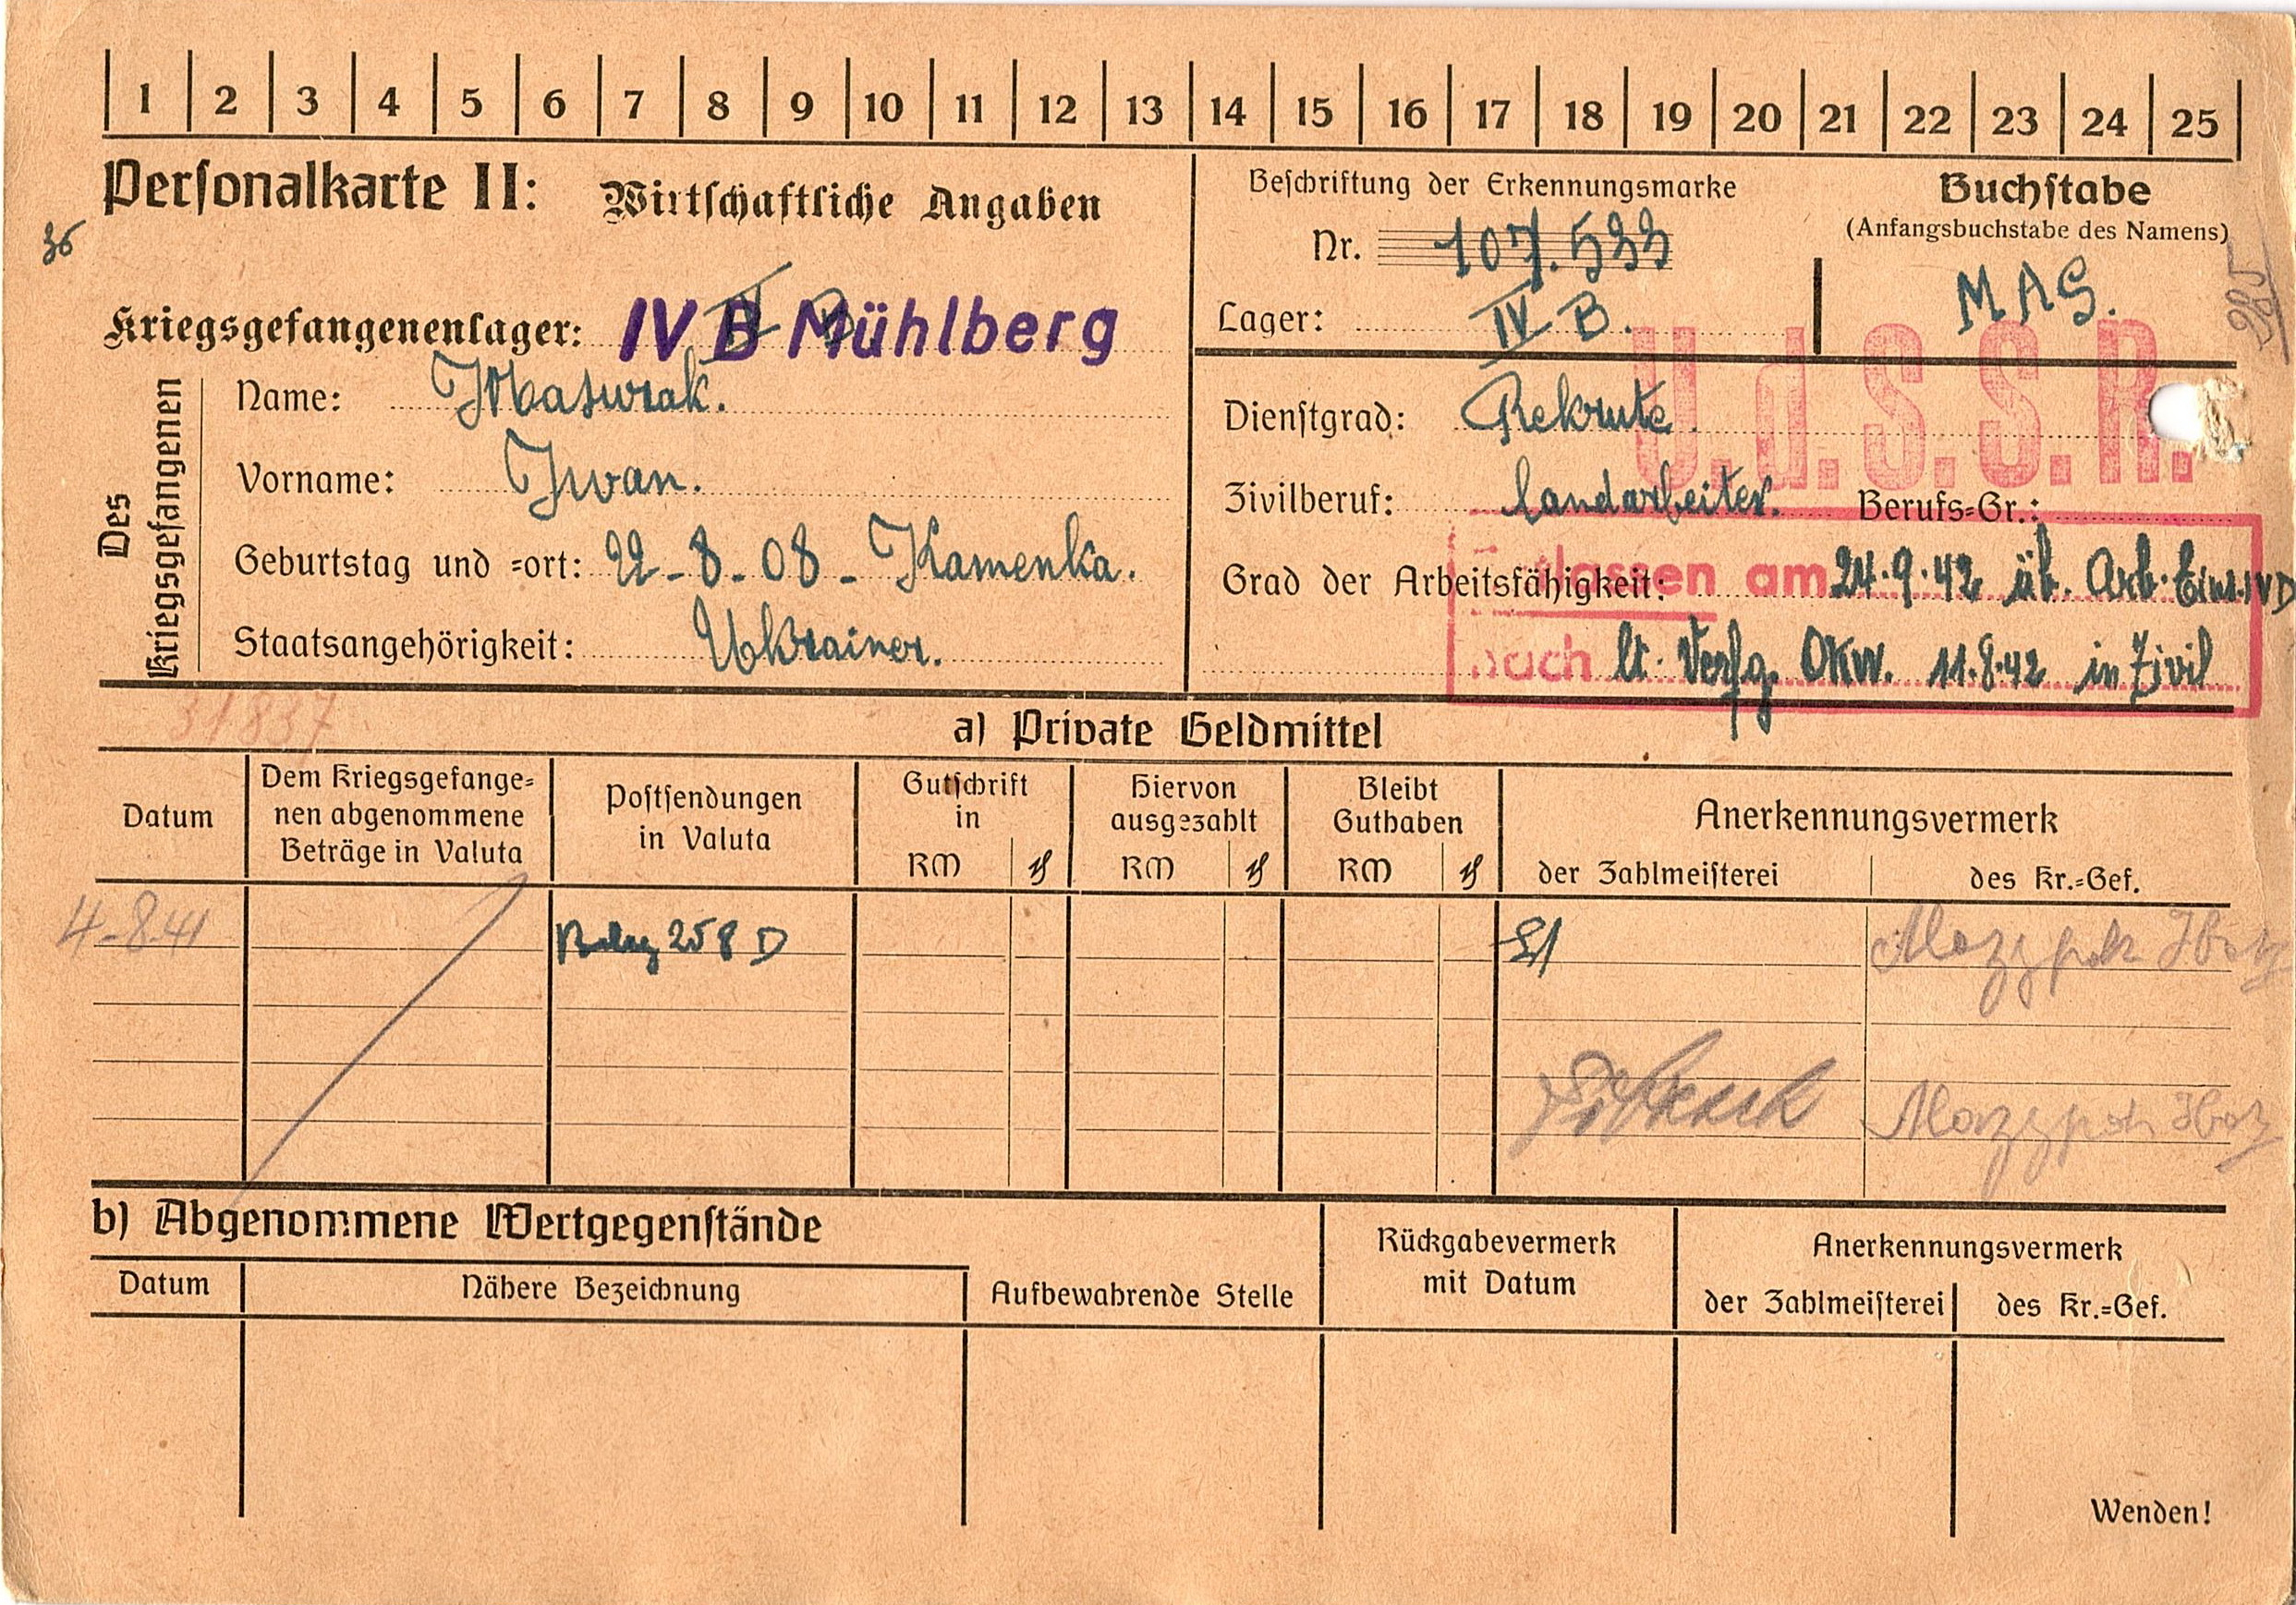 1 2 3 4 5 6 7 8 9 10 11 12 13 14 15 16 17 18 19 20 21 22 23 24 25
Personalkarte II: Wirtschaftliche Angaben
36
Beschriftung der Erkennungsmarke
Nr. 107.533
Lager: IV B.
Buchstabe
(Anfangsbuchstabe des Namens)
MAS.
985
Kriegsgefangenenlager: IV B Mühlberg
Des Kriegsgefangenen
Name: Masurak.
Vorname: Iwan.
Geburtstag und =ort: 22-8-08- Kamenka.
Staatsangehörigkeit: Ukrainer.
U.d.S.S.R.
Dienstgrad: Rekrute.
Zivilberuf: Landarbeiter. Berufs=Gr.:
Grad der Arbeitsfähigkeit:
Entlassen am 24.9.42 üb. Arb. Eins. IV D
nach lt. Verfg. OKW. 11.8.42 in Zivil
31837
a) Private Geldmittel
Datum
Dem Kriegsgefange=
nen abgenommene
Beträge in Valuta
Postsendungen
in Valuta
Gutschrift
in
RM ₰
Hiervon
ausgezahlt
RM ₰
Bleibt
Guthaben
RM ₰
Anerkennungsvermerk
der Zahlmeisterei
des Kr.=Gef.
4-8.41
258 D
Мазурак Иван
Мазурак Иван
b) Abgenommene Wertgegenstände
Datum
Nähere Bezeichnung
Aufbewahrende Stelle
Rückgabevermerk
mit Datum
Anerkennungsvermerk
der Zahlmeisterei
des Kr.=Gef.
Wenden!